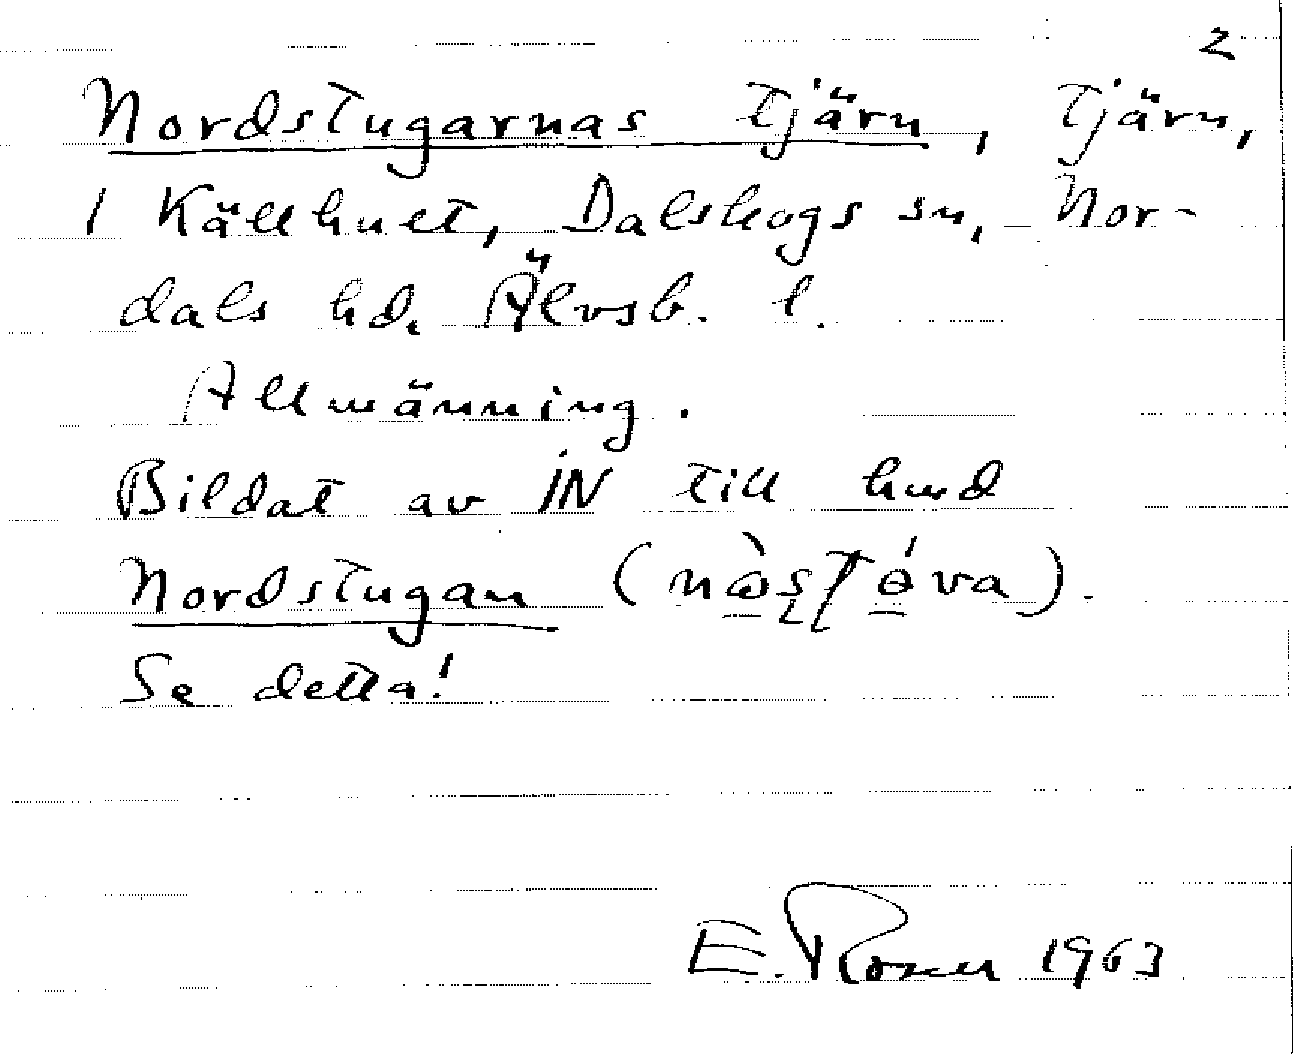 2
Nordstugarnas tjärn, tjärn,
i Källhult, Dalskogs sn, Nor-
dals hd. Älvsb. l.
Allmänning.
Bildat av IN till hmd
Nordstugan ( ).
Se detta!
E. Rosell 1963